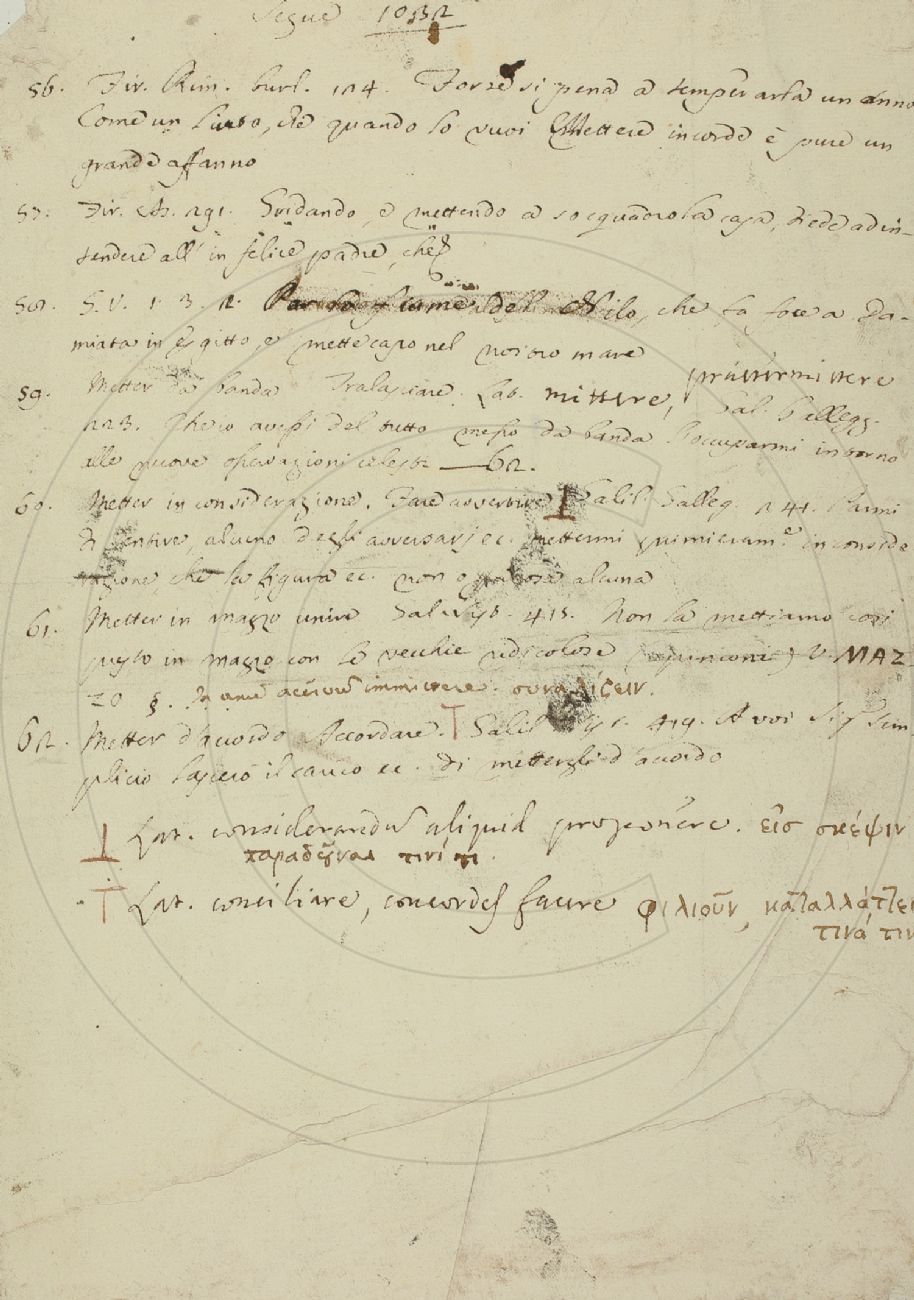 Segue 1032
56. Fir. Rim. burl. 124. Forse si pena a temperarla un anno
Come un liuto, che quando lo vuoi Mettere in corde è pure un
grande affanno
57. Fir. As. 291. Gridando, e mettendo a soqquadro la casa, diede ad in-
tendere all' infelice padre, che
58. S. V. 1. 3. 2. del Nilo, che fa foce a Da-
miata in Egitto, e mette capo nel nostro mare
59. Metter da banda Tralasciare. Lat. mittere, praetermittere Gal. Gallegg.
223. Che io avessi del tutto messo da banda l'occuparmi intorno
alle nuove operazioni celesti — 62.
60. Metter in considerazione. Fare avvertire ⊥ Galil. Galleg. 241. Parmi
di sentire, alcuno degli avversarj ec. mettermi primieram.e in conside
razione, che la figura ec. non alcuna
61. Metter in mazzo unire Gal. 415. Non la mettiamo così
presto in mazzo con le vecchie ridicolose (opinioni) V. MAZ
ZO §. immittere. συναλίζειν.
62. Metter d'accordo Accordare. T Galil. 419. A voi Sig. Sim-
plicio lascerò il carico ec. di mettergli d'accordo
⊥ Lat. considerandū aliquid proponere. εἰς σκέψιν
παραδοῦναι τινί τι.
T Lat. conciliare, concordes facere φιλιοῦν, καταλλάττει
τινά τιν